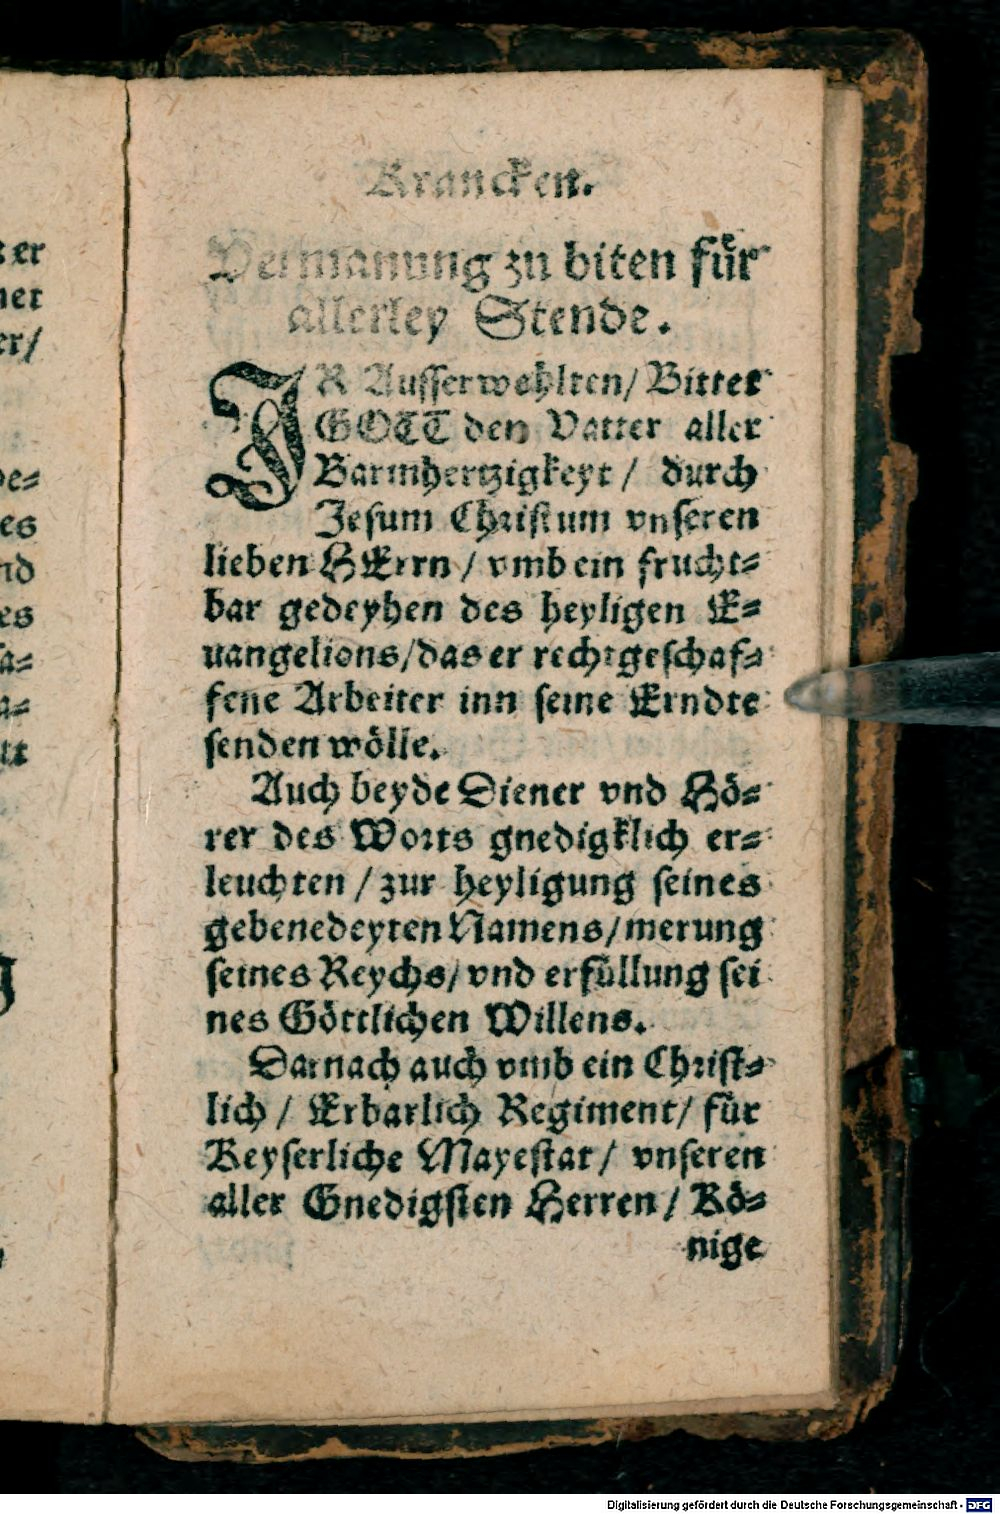 Krancken.
Vermanung zu biten für
allerley Stende.
IR Ausserwehlten/ Bittet
GOTT den Vatter aller
Barmhertzigkeyt / durch
Jesum Christum vnseren
lieben HErrn / vmb ein frucht⸗
bar gedeyhen des heyligen E⸗
uangelions/das er rechtgeschaf⸗
fene Arbeiter inn seine Erndte
senden wölle.
Auch beyde Diener vnd Hö⸗
rer des Worts gnedigklich er⸗
leuchten / zur heyligung seines
gebenedeyten Namens/merung
seines Reychs/ vnd erfüllung sei
nes Göttlichen Willens.
Darnach auch vmb ein Christ⸗
lich / Erbarlich Regiment/ für
Keyserliche Mayestat / vnseren
aller Gnedigsten Herren / Kö⸗
nige
Digitalisierung gefördert durch die Deutsche Forschungsgemeinschaft - DFG